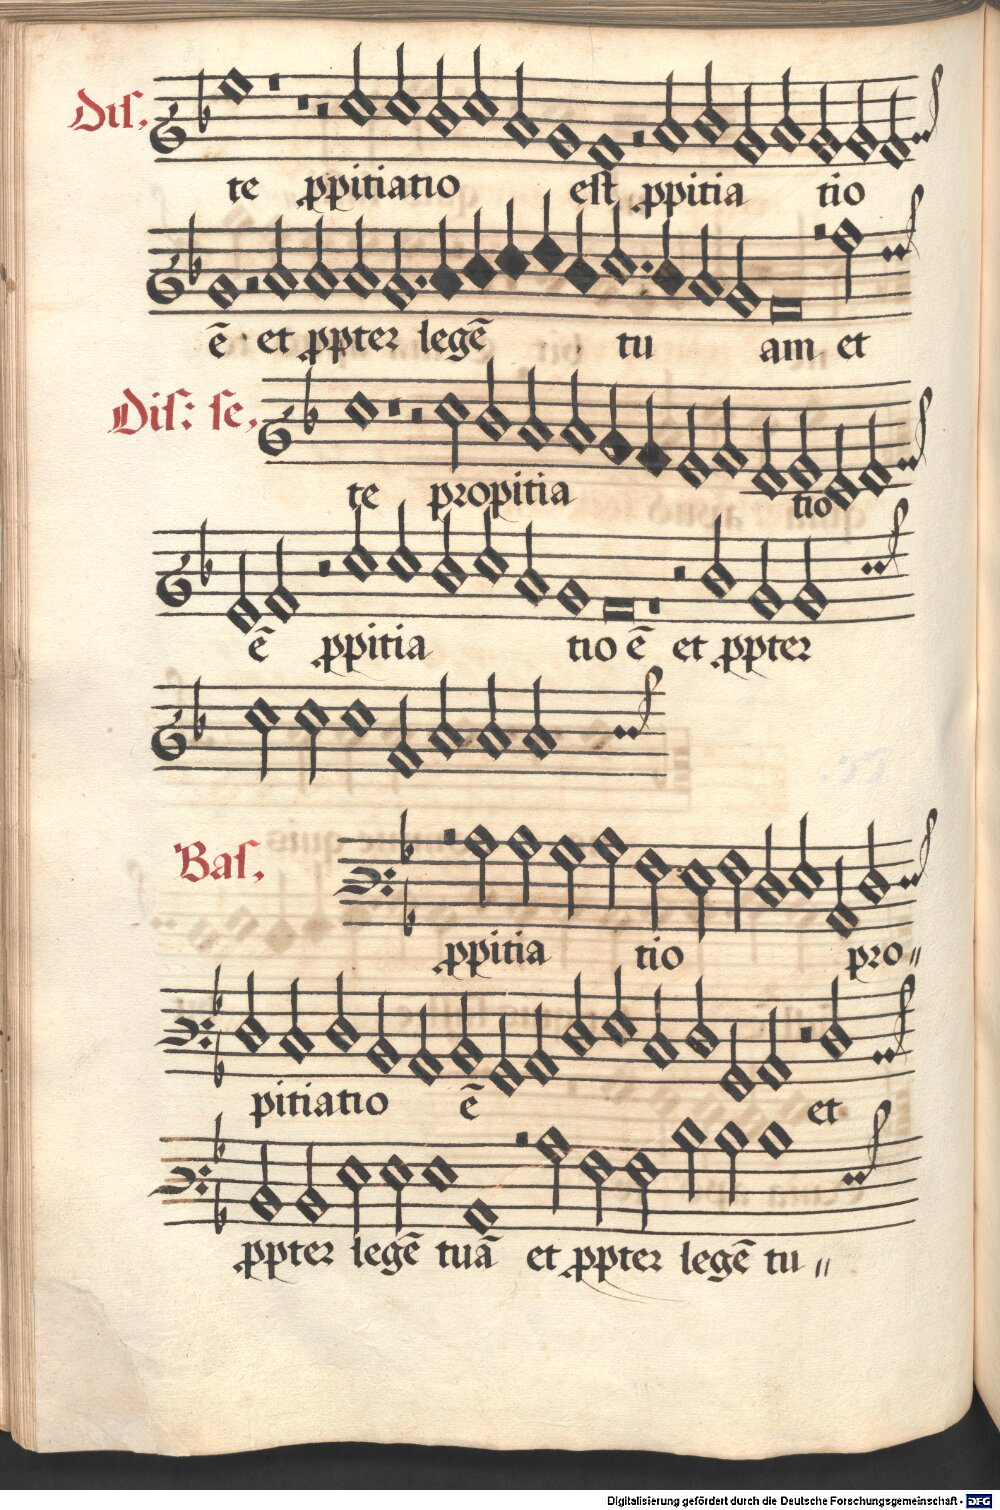 Dis,
te ppitiatio est ppitia tio
ē et ppter legē tu am et
Dis: se,
te propitia tio
ē ppitia tio ē et ppter
Bas,
ppitia tio pro„
pitiatio ē et
ppter legē tuā et ppter legē tu„
Digitalisierung gefördert durch die Deutsche Forschungsgemeinschaft - DFG